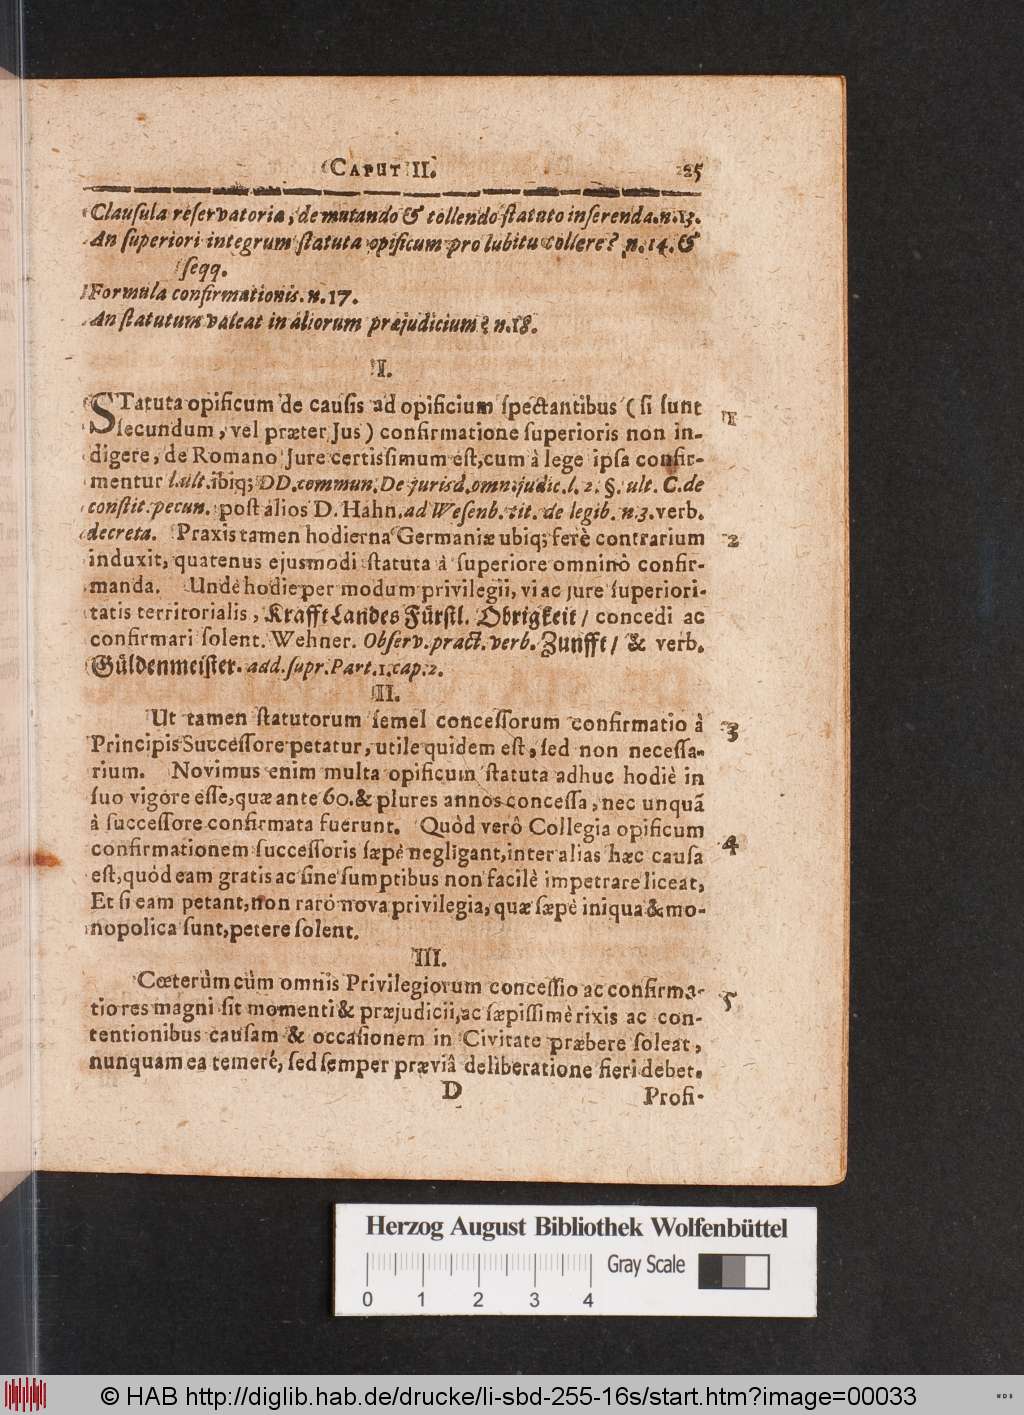 CAPUT II. 25
Clauſula reſervatoria, de mutando & tollendo ſtatuto inſerenda. n. 13.
An ſuperiori integrum ſtatuta opificum pro lubitu tollere? n. 14. &
ſeqq.
Formula confirmationis. n. 17.
An ſtatutum valeat in aliorum præjudicium? n. 18.
I.
STatuta opificum de cauſis ad opificium ſpectantibus (ſi ſunt 1
ſecundum, vel præter Jus) confirmatione ſuperioris non in-
digere, de Romano Jure certiſſimum eſt, cum à lege ipſa confir-
mentur l. ult. ibiq; DD. commun. De jurisd. omn. judic. l. 2. §. ult. C. de
conſtit. pecun. poſt alios D. Hahn. ad Weſenb. tit. de legib. n. 3. verb.
decreta. Praxis tamen hodierna Germaniæ ubiq; ferè contrarium 2
induxit, quatenus ejusmodi ſtatuta à ſuperiore omninò confir-
manda. Undè hodie per modum privilegii, vi ac jure ſuperiori-
tatis territorialis, Krafft Landes Fürſtl. Obrigkeit / concedi ac
confirmari ſolent. Wehner. Obſerv. pract. verb. Zunfft / & verb.
Güldenmeiſter. add. ſupr. Part. 1. cap. 2.
II.
Ut tamen ſtatutorum ſemel conceſſorum confirmatio à 3
Principis Succeſſore petatur, utile quidem eſt, ſed non neceſſa-
rium. Novimus enim multa opificum ſtatuta adhuc hodiè in
ſuo vigore eſſe, quæ ante 60. & plures annos conceſſa, nec unquã
à ſucceſſore confirmata fuerunt. Quòd verô Collegia opificum 4
confirmationem ſucceſſoris ſæpè negligant, inter alias hæc cauſa
eſt, quòd eam gratis ac ſine ſumptibus non facilè impetrare liceat,
Et ſi eam petant, non rarò nova privilegia, quæ ſæpè iniqua & mo-
nopolica ſunt, petere ſolent.
III.
Cœterùm cùm omnis Privilegiorum conceſſio ac confirma- 5
tio res magni ſit momenti & præjudicii, ac ſæpiſſimè rixis ac con-
tentionibus cauſam & occaſionem in Civitate præbere ſoleat,
nunquam ea temerè, ſed ſemper præviâ deliberatione fieri debet.
D Profi-
Herzog August Bibliothek Wolfenbüttel
Gray Scale
0 1 2 3 4
© HAB http://diglib.hab.de/drucke/li-sbd-255-16s/start.htm?image=00033